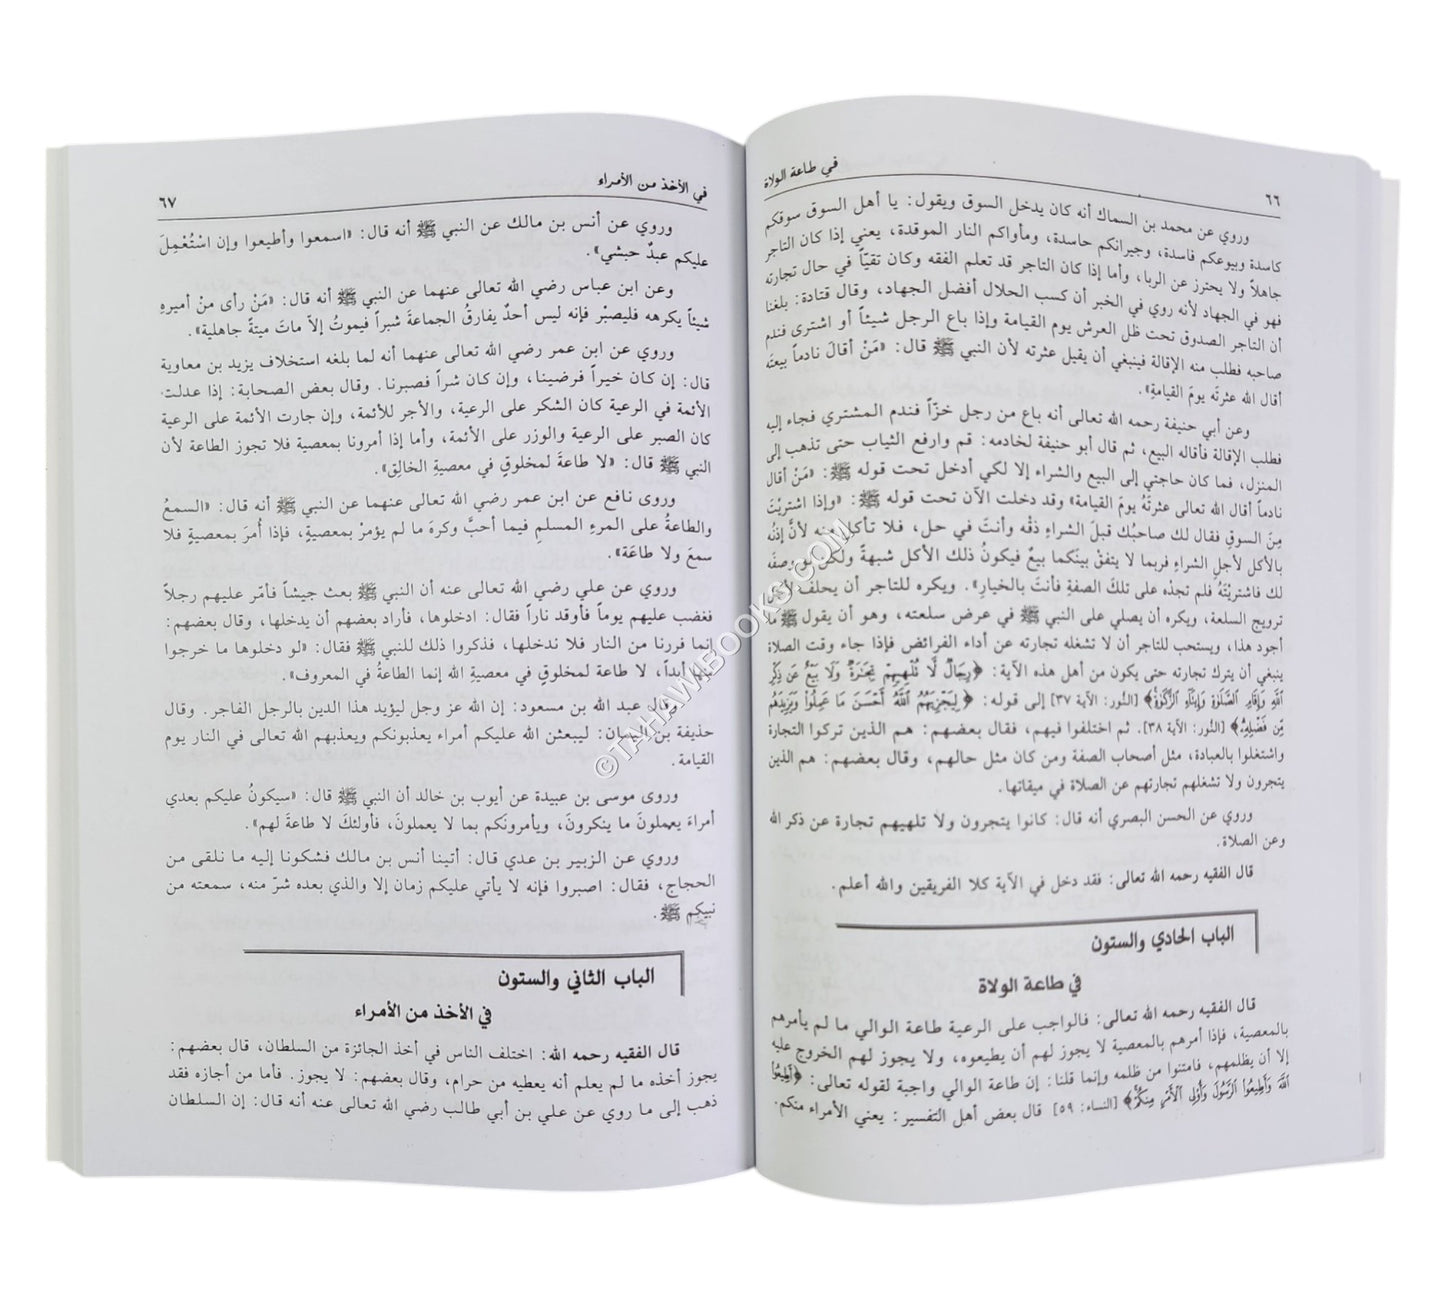 ٦٦ في طاعة الولاة
وروي عن محمد بن السماك أنه كان يدخل السوق ويقول: يا أهل السوق سوقكم
كاسدة وبيوعكم فاسدة، وجيرانكم حاسدة، ومأواكم النار الموقدة، يعني إذا كان التاجر
جاهلاً ولا يحترز عن الربا، وأما إذا كان التاجر قد تعلم الفقه وكان تقيّاً في حال تجارته
فهو في الجهاد لأنه روي في الخبر أن كسب الحلال أفضل الجهاد، وقال قتادة: بلغنا
أن التاجر الصدوق تحت ظل العرش يوم القيامة وإذا باع الرجل شيئاً أو اشترى فندم
صاحبه فطلب منه الإقالة فينبغي أن يقيل عثرته لأن النبي ﷺ قال: «مَنْ أقالَ نادماً بيعتَه
أقال الله عثرتَه يومَ القيامةِ».
وعن أبي حنيفة رحمه الله تعالى أنه باع من رجل خزّاً فندم المشتري فجاء إليه
فطلب الإقالة فأقاله البيع، ثم قال أبو حنيفة لخادمه: قم وارفع الثياب حتى تذهب إلى
المنزل، فما كان حاجتي إلى البيع والشراء إلا لكي أدخل تحت قوله ﷺ: «مَنْ أقال
نادماً أقال الله تعالى عثرتَهُ يومَ القيامة» وقد دخلت الآن تحت قوله ﷺ: «وإذا اشتريْتَ
مِنَ السوقِ فقال لك صاحبُك قبلَ الشراءِ ذقْه وأنتَ في حل، فلا تأكل منه لأنَّ إذنَه
بالأكل لأجلِ الشراءِ فربما لا يتفقُ بينَكما بيعٌ فيكونُ ذلك الأكل شبهةً ولكن لو وصفَه
لك فاشتريْتَهُ فلم تجدْه على تلكَ الصفةِ فأنتَ بالخيارِ». ويكره للتاجر أن يحلف لأجل
ترويج السلعة، ويكره أن يصلي على النبي ﷺ في عرض سلعته، وهو أن يقول ﷺ ما
أجود هذا، ويستحب للتاجر أن لا تشغله تجارته عن أداء الفرائض فإذا جاء وقت الصلاة
ينبغي أن يترك تجارته حتى يكون من أهل هذه الآية: ﴿رِجَالٌ لَّا تُلْهِيهِمْ تِجَٰرَةٌ وَلَا بَيْعٌ عَن ذِكْرِ
ٱللَّهِ وَإِقَامِ ٱلصَّلَوٰةِ وَإِيتَآءِ ٱلزَّكَوٰةِ﴾ [النُّور: الآية ٣٧] إلى قوله: ﴿لِيَجْزِيَهُمُ ٱللَّهُ أَحْسَنَ مَا عَمِلُوا۟ وَيَزِيدَهُم
مِّن فَضْلِهِۦ﴾ [النُّور: الآية ٣٨]. ثم اختلفوا فيهم، فقال بعضهم: هم الذين تركوا التجارة
واشتغلوا بالعبادة، مثل أصحاب الصفة ومن كان مثل حالهم، وقال بعضهم: هم الذين
يتجرون ولا تشغلهم تجارتهم عن الصلاة في ميقاتها.
وروي عن الحسن البصري أنه قال: كانوا يتجرون ولا تلهيهم تجارة عن ذكر الله
وعن الصلاة.
قال الفقيه رحمه الله تعالى: فقد دخل في الآية كلا الفريقين والله أعلم.
الباب الحادي والستون
في طاعة الولاة
قال الفقيه رحمه الله تعالى: فالواجب على الرعية طاعة الوالي ما لم يأمرهم
بالمعصية، فإذا أمرهم بالمعصية لا يجوز لهم أن يطيعوه، ولا يجوز لهم الخروج عليه
إلا أن يظلمهم، فامتنوا من ظلمه وإنما قلنا: إن طاعة الوالي واجبة لقوله تعالى: ﴿أَطِيعُوا۟
ٱللَّهَ وَأَطِيعُوا۟ ٱلرَّسُولَ وَأُو۟لِى ٱلْأَمْرِ مِنكُمْ﴾ [النساء: ٥٩] قال بعض أهل التفسير: يعني الأمراء منكم.
في الأخذ من الأمراء ٦٧
وروي عن أنس بن مالك عن النبي ﷺ أنه قال: «اسمعوا وأطيعوا وإن اسْتُعْمِلَ
عليكم عبدٌ حبشي».
وعن ابن عباس رضي الله تعالى عنهما عن النبي ﷺ أنه قال: «مَنْ رأى منْ أميرِهِ
شيئاً يكرهه فليصبْر فإنه ليس أحدٌ يفارقُ الجماعةَ شبراً فيموتُ إلاّ ماتَ ميتةً جاهلية».
وروي عن ابن عمر رضي الله تعالى عنهما أنه لما بلغه استخلاف يزيد بن معاوية
قال: إن كان خيراً فرضينا، وإن كان شراً فصبرنا. وقال بعض الصحابة: إذا عدلت
الأئمة في الرعية كان الشكر على الرعية، والأجر للأئمة، وإن جارت الأئمة على الرعية
كان الصبر على الرعية والوزر على الأئمة، وأما إذا أمرونا بمعصية فلا تجوز الطاعة لأن
النبي ﷺ قال: «لا طاعةَ لمخلوقٍ في معصيةِ الخالِقِ».
وروى نافع عن ابن عمر رضي الله تعالى عنهما عن النبي ﷺ أنه قال: «السمعُ
والطاعةُ على المرءِ المسلمِ فيما أحبَّ وكرهَ ما لم يؤمرْ بمعصيةٍ، فإذا أُمرَ بمعصيةٍ فلا
سمعَ ولا طاعَة».
وروي عن علي رضي الله تعالى عنه أن النبي ﷺ بعث جيشاً فأمّر عليهم رجلاً
فغضب عليهم يوماً فأوقد ناراً فقال: ادخلوها، فأراد بعضهم أن يدخلها، وقال بعضهم:
إنما فررنا من النار فلا ندخلها، فذكروا ذلك للنبي ﷺ فقال: «لو دخلوها ما خرجوا
منها أبداً، لا طاعة لمخلوقٍ في معصيةِ الله إنما الطاعةُ في المعروف».
وقال عبد الله بن مسعود: إن الله عز وجل ليؤيد هذا الدين بالرجل الفاجر. وقال
حذيفة بن اليمان: ليبعثن الله عليكم أمراء يعذبونكم ويعذبهم الله تعالى في النار يوم
القيامة.
وروى موسى بن عبيدة عن أيوب بن خالد أن النبي ﷺ قال: «سيكونُ عليكم بعدي
أمراءَ يعملونَ ما ينكرونَ، ويأمرونَكم بما لا يعملونَ، فأولئكَ لا طاعةَ لهم».
وروي عن الزبير بن عدي قال: أتينا أنس بن مالك فشكونا إليه ما نلقى من
الحجاج، فقال: اصبروا فإنه لا يأتي عليكم زمان إلا والذي بعده شرّ منه، سمعته من
نبيكم ﷺ.
الباب الثاني والستون
في الأخذ من الأمراء
قال الفقيه رحمه الله: اختلف الناس في أخذ الجائزة من السلطان، قال بعضهم:
يجوز أخذه ما لم يعلم أنه يعطيه من حرام، وقال بعضهم: لا يجوز. فأما من أجازه فقد
ذهب إلى ما روي عن علي بن أبي طالب رضي الله تعالى عنه أنه قال: إن السلطان
©TAHAWIBOOKS.COM